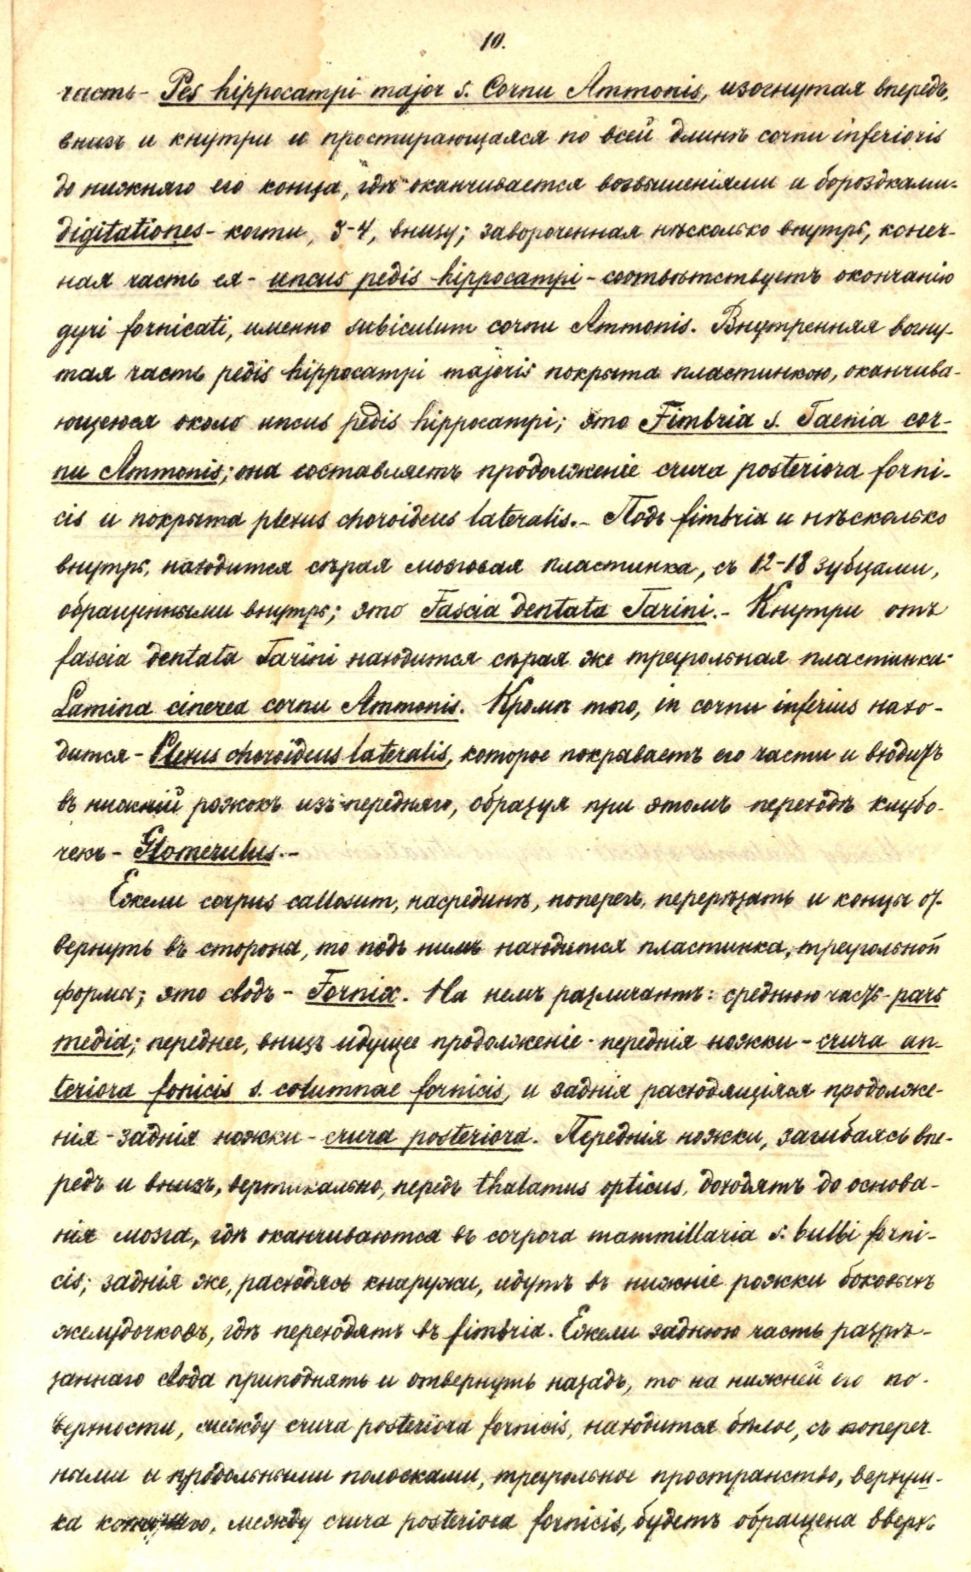 10.
часть - Pes hippocampi major s. Cornu Ammonis, изогнутая впередъ,
внизъ и кнутри и простирающаяся по всей длинѣ cornu inferioris
до нижняго его конца, гдѣ оканчивается возвышеніями и бороздками-
digitationes - когти, 3-4, внизу; завороченная нѣсколько внутрь, конеч-
ная часть ея - uncus pedis hippocampi - соотвѣтствуетъ окончанію
gyri fornicati, именно subiculum cornu Ammonis. Внутренняя вогну-
тая часть pedis hippocampi majoris покрыта пластинкою, оканчива-
ющеюся около uncus pedis hippocampi; это Fimbria s. Taenia cor-
nu Ammonis; она составляетъ продолженіе crura posteriora forni-
cis и покрыта plexus choroideus lateralis. - Подъ fimbria и нѣсколько
внутрь, находится сѣрая мозговая пластинка, съ 12-18 зубцами,
обращенными внутрь; это Fascia dentata Tarini. - Кнутри отъ
fascia dentata Tarini находится сѣрая же треугольная пластинка-
Lamina cinerea cornu Ammonis. Кромѣ того, in cornu inferius нахо-
дится - Plexus choroideus lateralis, которое покрываетъ его части и входитъ
въ нижній рожокъ изъ передняго, образуя при этомъ переходѣ клубо-
чекъ - Glomerulus. -
Ежели corpus callosum, насрединѣ, поперегъ, перерѣзать и концы от-
вернуть въ стороны, то подъ нимъ находится пластинка, треугольной
формы; это сводъ - Fornix. На немъ различаютъ: среднюю часть - pars
media; переднее, внизъ идущее продолженіе - переднія ножки - crura an-
teriora fonicis s. columnae fornicis, и заднія расходящіяся продолже-
нія - заднія ножки - crura posteriora. Переднія ножки, загибаясь впе-
редъ и внизъ, вертикально, передъ thalamus opticus, доходятъ до основа-
нія мозга, гдѣ оканчиваются въ corpora mammillaria s. bulbi forni-
cis; заднія же, расходясь кнаружи, идутъ въ нижніе рожки боковыхъ
желудочковъ, гдѣ переходятъ въ fimbria. Ежели заднюю часть разрѣ-
заннаго свода приподнять и отвернуть назадъ, то на нижней его по-
верхности, между crura posteriora fornicis, находится бѣлое, съ попереч-
ными и продольными полосками, треугольное пространство, верхуш-
ка котораго, между crura posteriora fornicis, будетъ обращена вверхъ